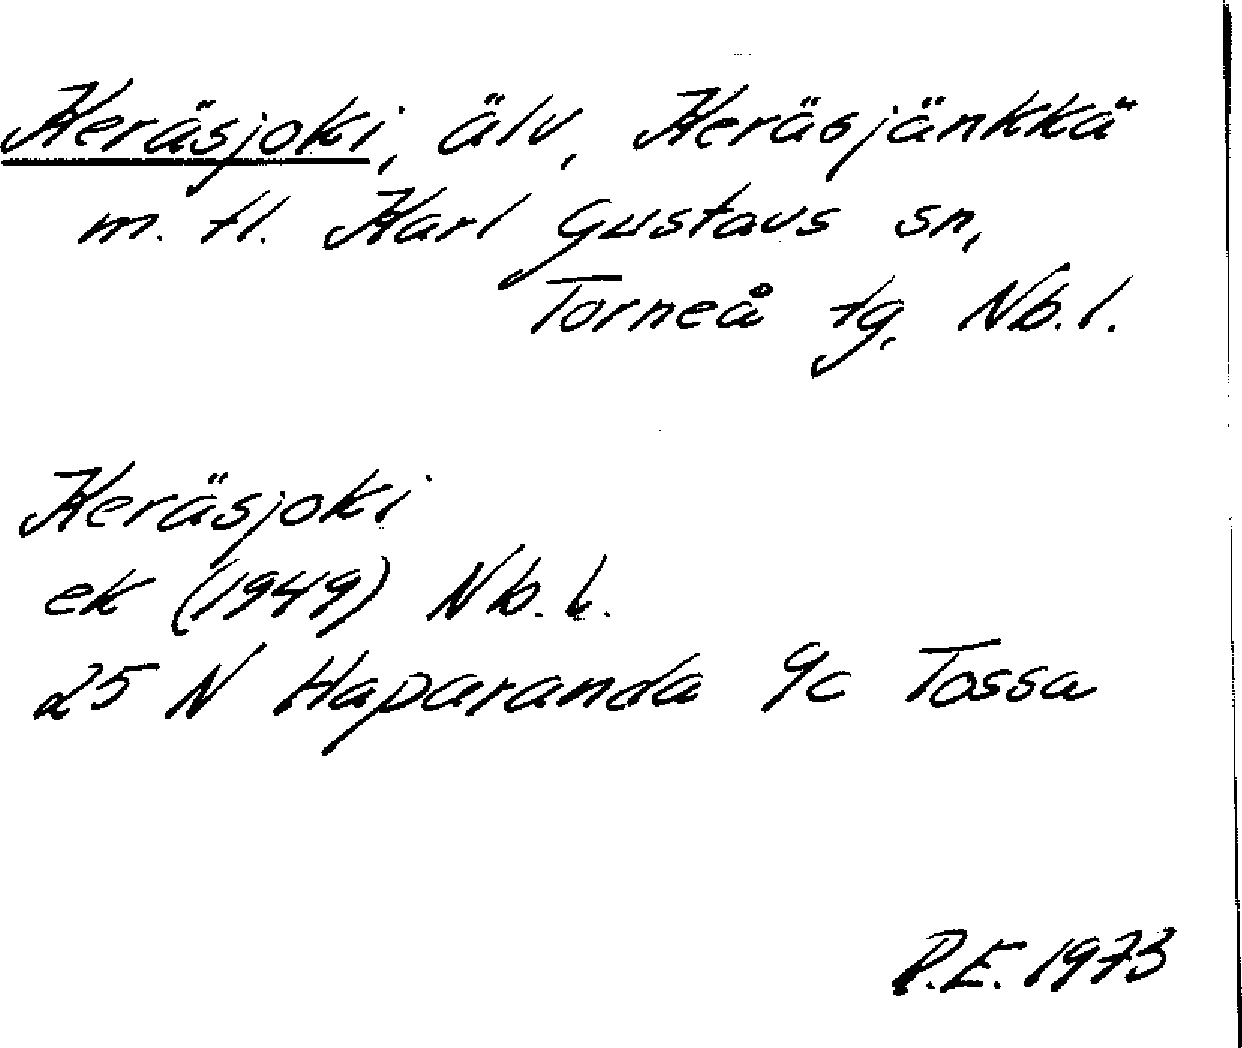 Keräsjoki, älv, Keräsjänkkä
m. fl. Karl Gustavs sn,
Torneå tg, Nb. l.
Keräsjoki
ek (1949) Nb. L.
25 N Haparanda 9c Tossa
P.E. 1973